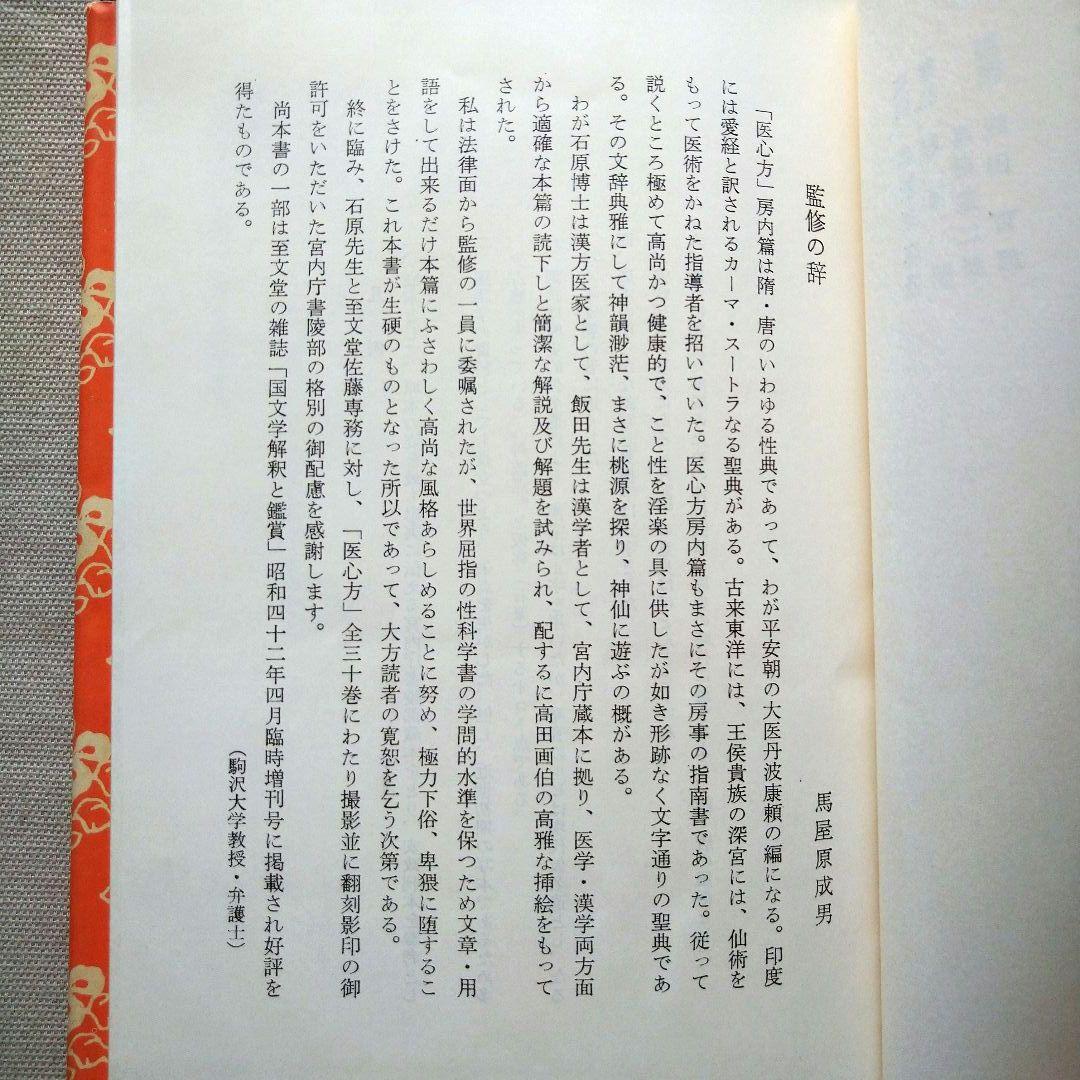 監修の辞
馬屋原成男
「医心方」房内篇は隋・唐のいわゆる性典であって、わが平安朝の大医丹波康頼の編になる。印度
には愛経と訳されるカーマ・スートラなる聖典がある。古来東洋には、王侯貴族の深宮には、仙術を
もって医術をかねた指導者を招いていた。医心方房内篇もまさにその房事の指南書であった。従って
説くところ極めて高尚かつ健康的で、こと性を淫楽の具に供したが如き形跡なく文字通りの聖典であ
る。その文辞典雅にして神韻渺茫、まさに桃源を探り、神仙に遊ぶの概がある。
わが石原博士は漢方医家として、飯田先生は漢学者として、宮内庁蔵本に拠り、医学・漢学両方面
から適確な本篇の読下しと簡潔な解説及び解題を試みられ、配するに高田画伯の高雅な挿絵をもって
された。
私は法律面から監修の一員に委嘱されたが、世界屈指の性科学書の学問的水準を保つため文章・用
語をして出来るだけ本篇にふさわしく高尚な風格あらしめることに努め、極力下俗、卑猥に堕するこ
とをさけた。これ本書が生硬のものとなった所以であって、大方読者の寛恕を乞う次第である。
終に臨み、石原先生と至文堂佐藤専務に対し、「医心方」全三十巻にわたり撮影並に翻刻影印の御
許可をいただいた宮内庁書陵部の格別の御配慮を感謝します。
尚本書の一部は至文堂の雑誌「国文学解釈と鑑賞」昭和四十二年四月臨時増刊号に掲載され好評を
得たものである。
（駒沢大学教授・弁護士）